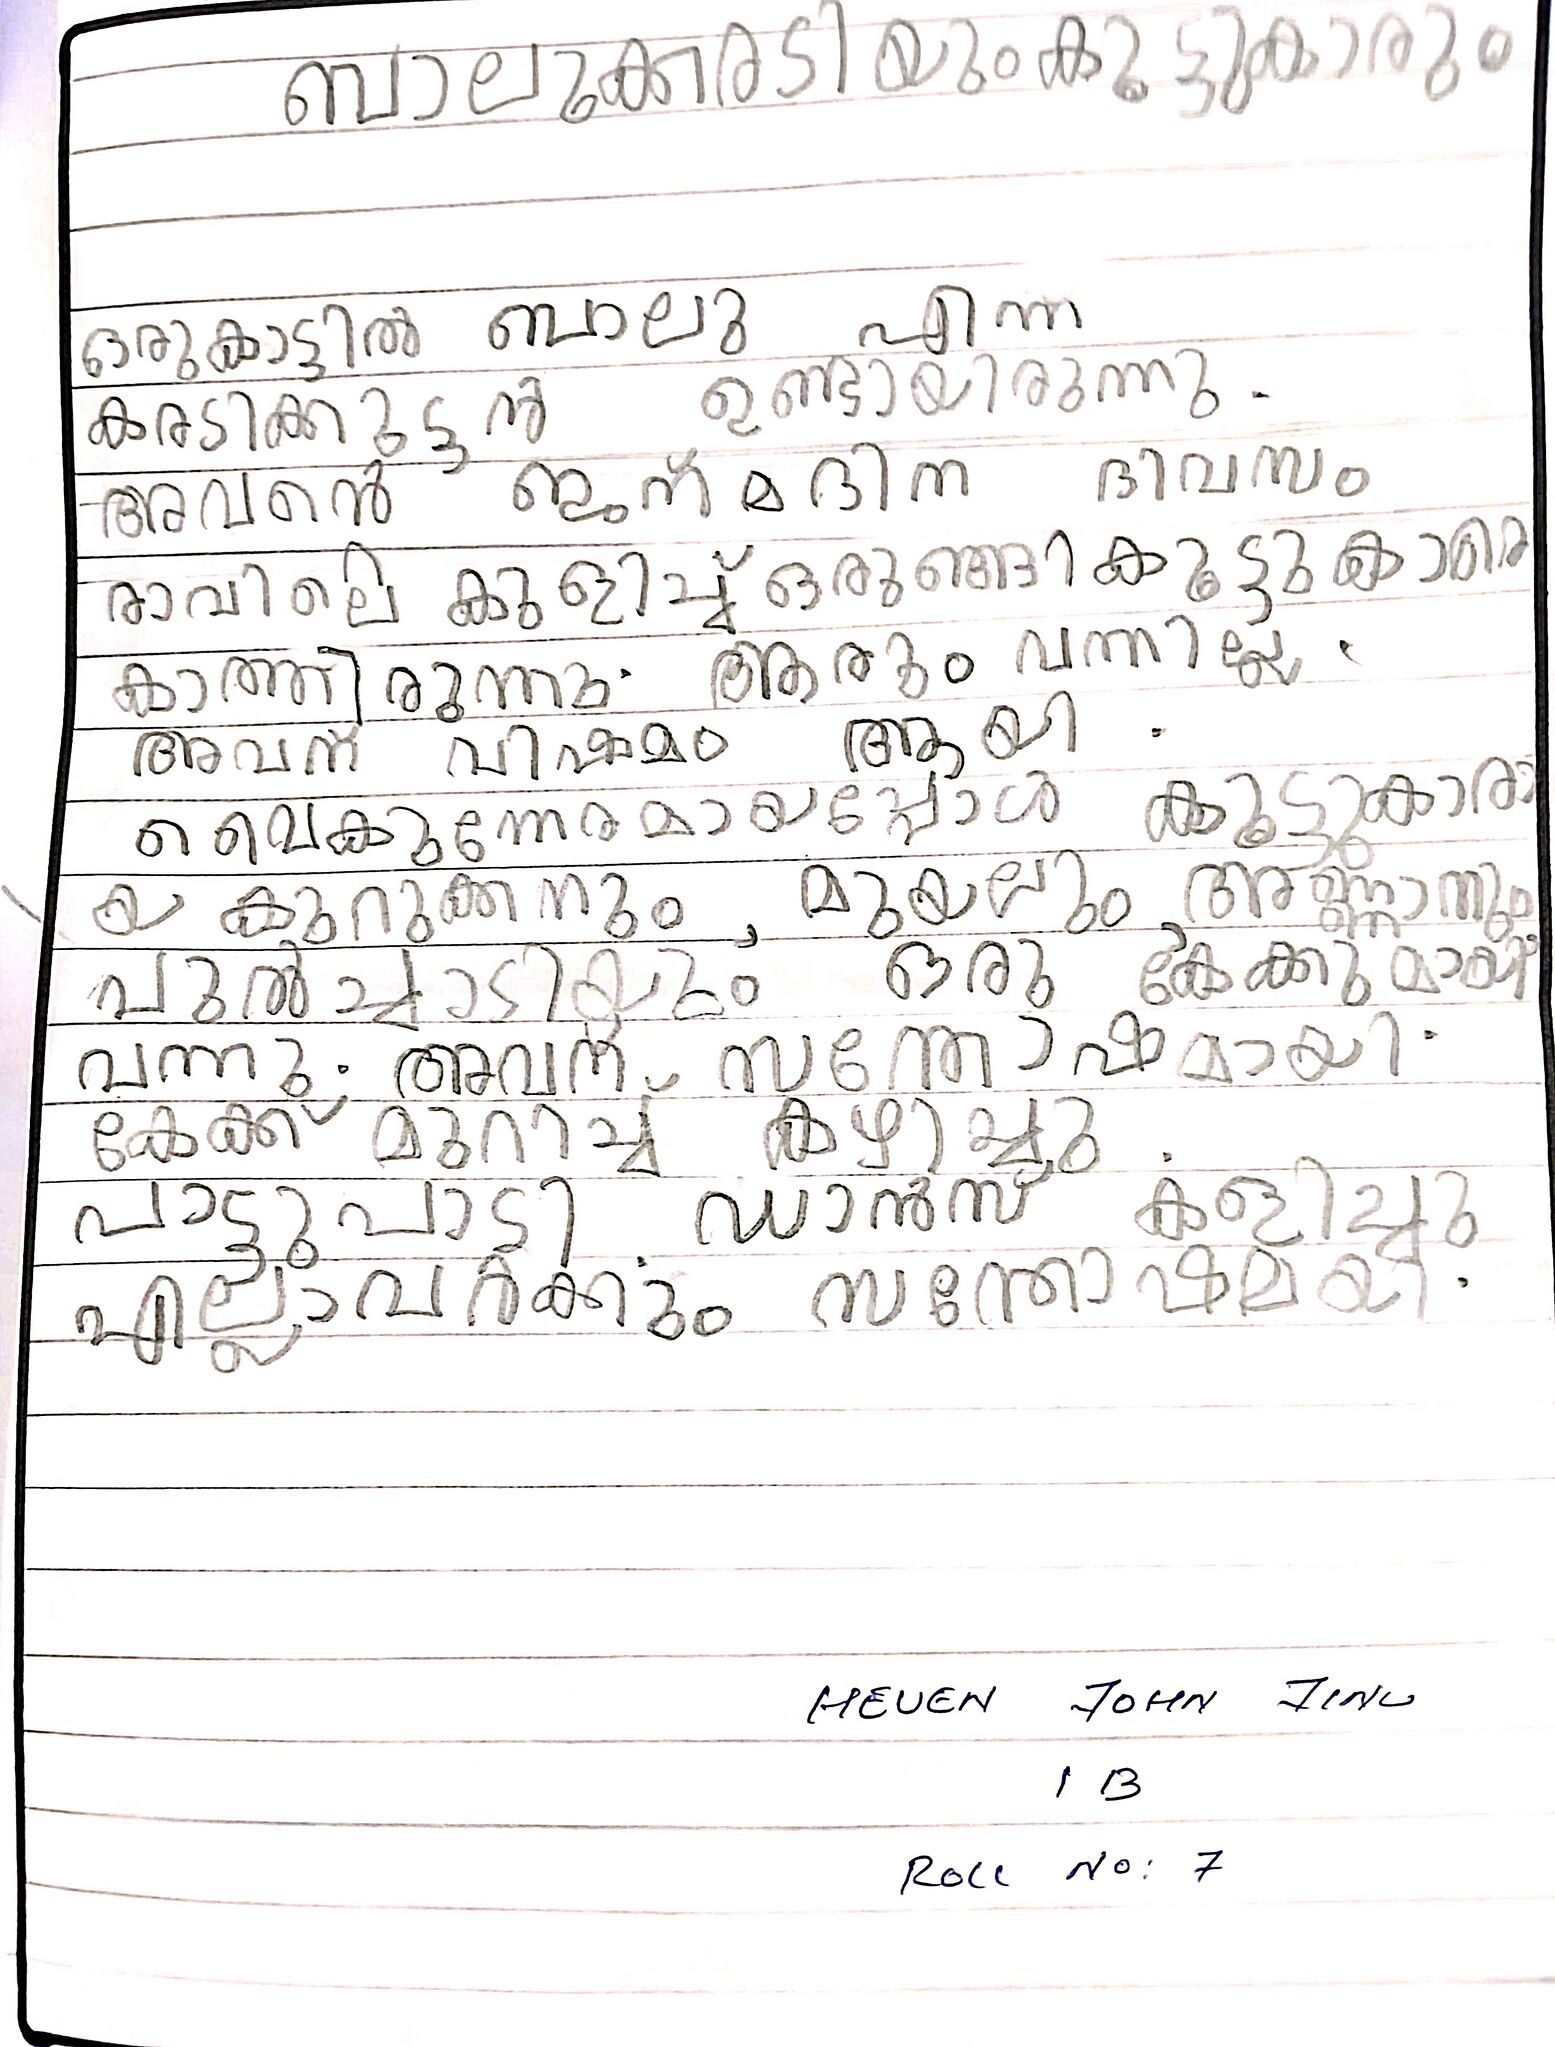 ബാലുക്കരടിയും കൂട്ടുകാരും
ഒരുകാട്ടിൽ ബാലു എന്ന
കരടിക്കുട്ടൻ ഉണ്ടായിരുന്നു.
അവൻെ ജന്മദിന ദിവസം
രാവിലെ കുളിച്ച് ഒരുങ്ങി കൂട്ടുകാരെ
കാത്തിരുന്നു. ആരും വന്നില്ല.
അവന് വിഷമം ആയി.
വൈകുന്നേരമായപ്പോൾ കൂട്ടുകാരാ
യ കുറുക്കനും, മുയലും, അണ്ണാനും
പുൽച്ചാടിയും ഒരു കേക്കുമായി
വന്നു. അവന് സന്തോഷമായി.
കേക്ക് മുറിച്ച് കഴിച്ചു.
പാട്ടുപാടി. ഡാൻസ് കളിച്ചു
എല്ലാവർക്കും സന്തോഷമയി.
HEVEN JOHN JINU
1 B
ROLL NO: 7